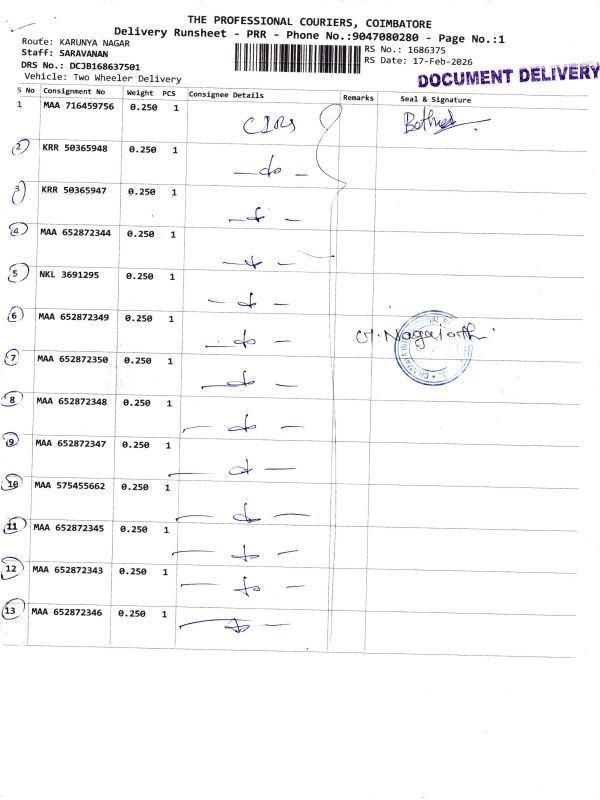 THE PROFESSIONAL COURIERS, COIMBATORE
Delivery Runsheet - PRR - Phone No.:9047080280 - Page No.:1
Route: KARUNYA NAGAR
RS No.: 1686375
Staff: SARAVANAN
RS Date: 17-Feb-2026
DRS No.: DCJB168637501
DOCUMENT DELIVERY
Vehicle: Two Wheeler Delivery
S No Consignment No Weight PCS Consignee Details Remarks Seal & Signature
1 MAA 716459756 0.250 1
2 KRR 50365948 0.250 1
do
3 KRR 50365947 0.250 1
4 MAA 652872344 0.250 1
5 NKL 3691295 0.250 1
6 MAA 652872349 0.250 1
do
7 MAA 652872350 0.250 1
do
8 MAA 652872348 0.250 1
do
9 MAA 652872347 0.250 1
do
10 MAA 575455662 0.250 1
do
11 MAA 652872345 0.250 1
do
12 MAA 652872343 0.250 1
do
13 MAA 652872346 0.250 1
do